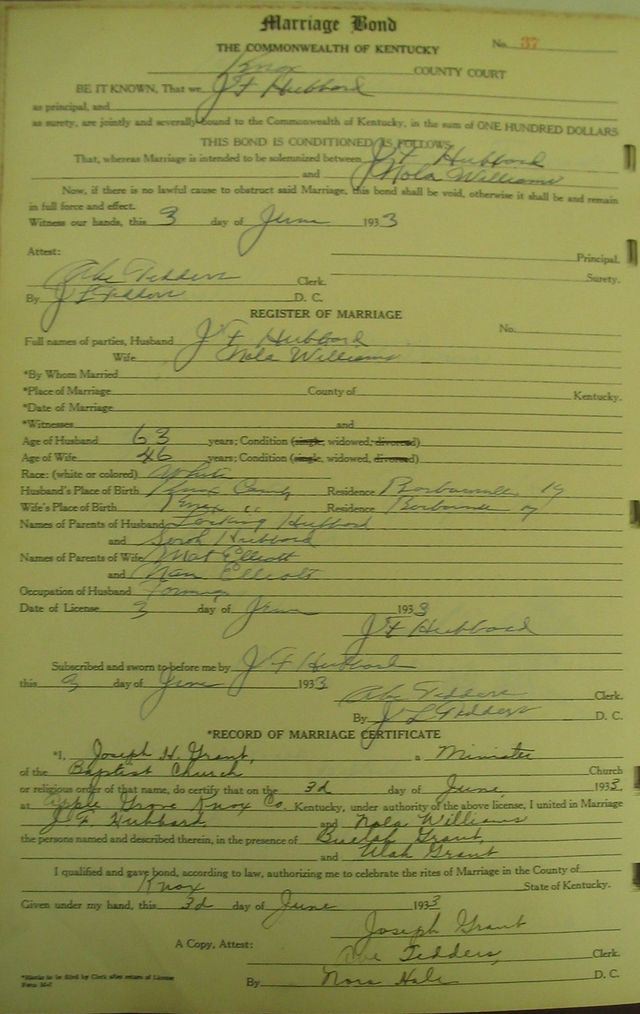 Marriage Bond
THE COMMONWEALTH OF KENTUCKY No. 37
Knox COUNTY COURT
BE IT KNOWN, That we J F Hubbard
as principal, and
as surety, are jointly and severally bound to the Commonwealth of Kentucky, in the sum of ONE HUNDRED DOLLARS
THIS BOND IS CONDITIONED AS FOLLOWS
That, whereas Marriage is intended to be solemnized between J F Hubbard
and Nola Williams
Now, if there is no lawful cause to obstruct said Marriage, this bond shall be void, otherwise it shall be and remain
in full force and effect.
Witness our hands, this 3 day of June 1933
Principal.
Attest:
Surety.
Abe Tedders Clerk.
By J L Tedders D. C.
REGISTER OF MARRIAGE
No.
Full names of parties, Husband J F Hubbard
Wife Nola Williams
*By Whom Married
*Place of Marriage County of Kentucky.
*Date of Marriage
*Witnesses and
Age of Husband 63 years; Condition (single, widowed, divorced)
Age of Wife 46 years; Condition (single, widowed, divorced)
Race: (white or colored) White
Husband's Place of Birth Knox County Residence Barbourville Ky
Wife's Place of Birth Knox " Residence Barbourville Ky
Names of Parents of Husband Hubbard
and Sarah Hubbard
Names of Parents of Wife Mat Elliott
and Nan Elliott
Occupation of Husband Farming
Date of License 3 day of June 1933
J F Hubbard
Subscribed and sworn to before me by J F Hubbard
this 3 day of June 1933
Abe Tedders Clerk.
By J L Tedders D. C.
*RECORD OF MARRIAGE CERTIFICATE
*I, Joseph H. Grant, a Minister
of the Baptist Church Church
or religious order of that name, do certify that on the 3d day of June, 1933.
at Apple Grove Knox Co. Kentucky, under authority of the above license, I united in Marriage
J F Hubbard and Nola Williams
the persons named and described therein, in the presence of Beulah Grant,
and Ulah Grant
I qualified and gave bond, according to law, authorizing me to celebrate the rites of Marriage in the County of
Knox State of Kentucky.
Given under my hand, this 3d day of June 1933
Joseph Grant
A Copy, Attest: Abe Tedders, Clerk.
By Nora Hale D. C.
*Blanks to be filled by Clerk after return of License